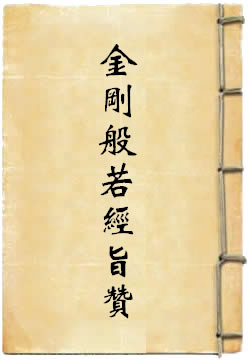 金剛般若經旨贊